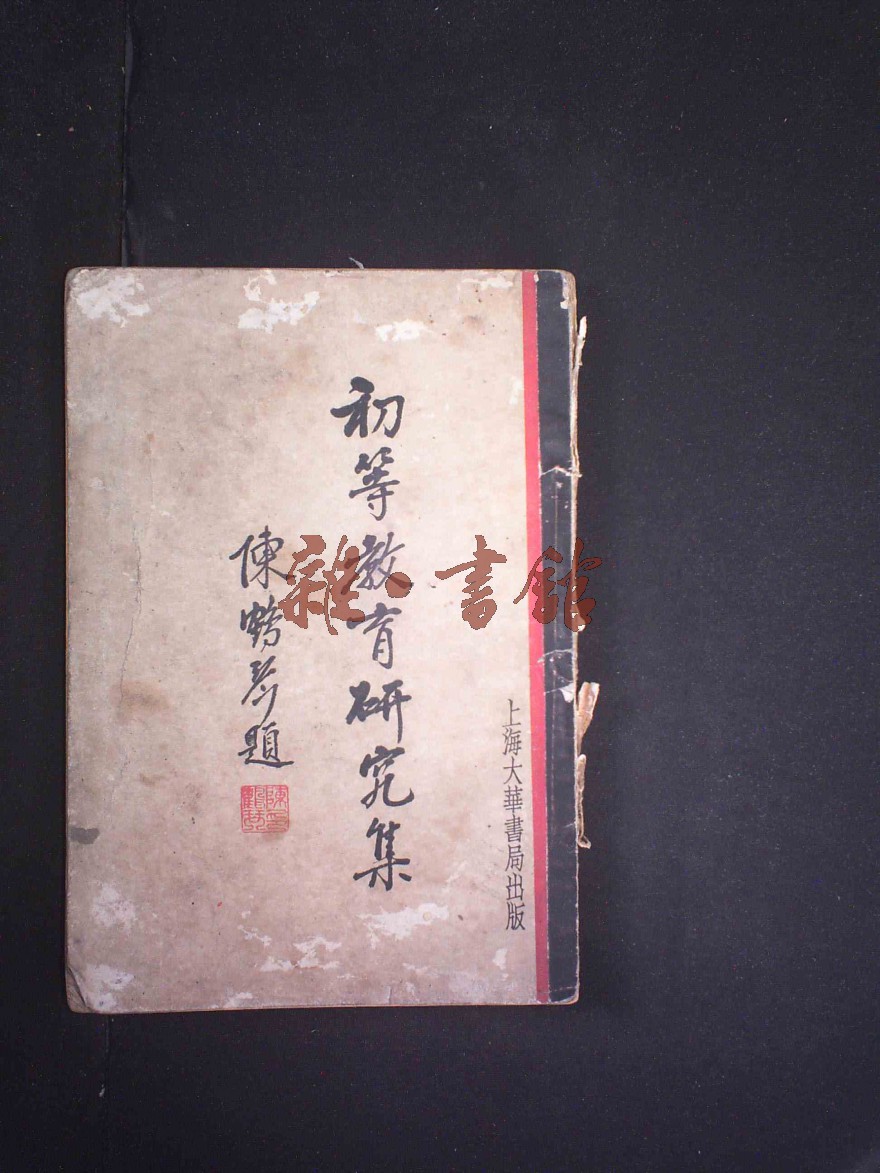 上海大華書局出版
初等教育研究集
陳鶴琴題
陳鶴琴印
雜·書館